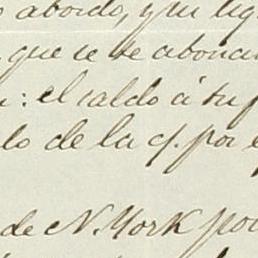 abordo, y mi
que se te abonar
: el saldo á tu
lo de la c/. por
de N. York por